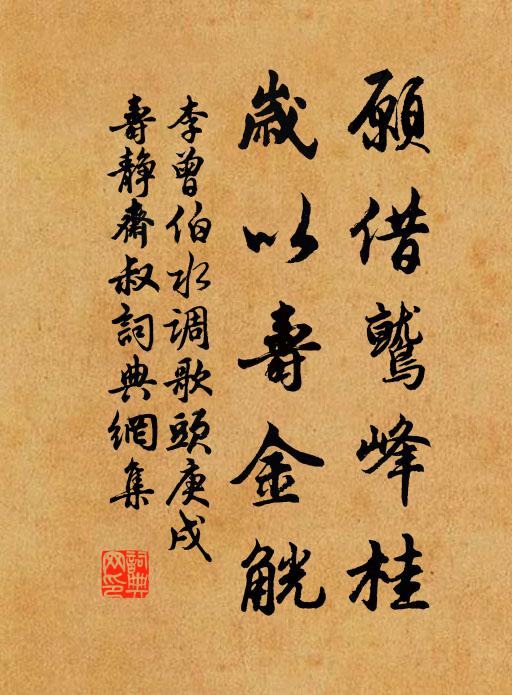 願借鷲峰桂
歲以壽金觥
李曾伯水調歌頭庚戌
壽静齋叔詞典網集
詞典网印